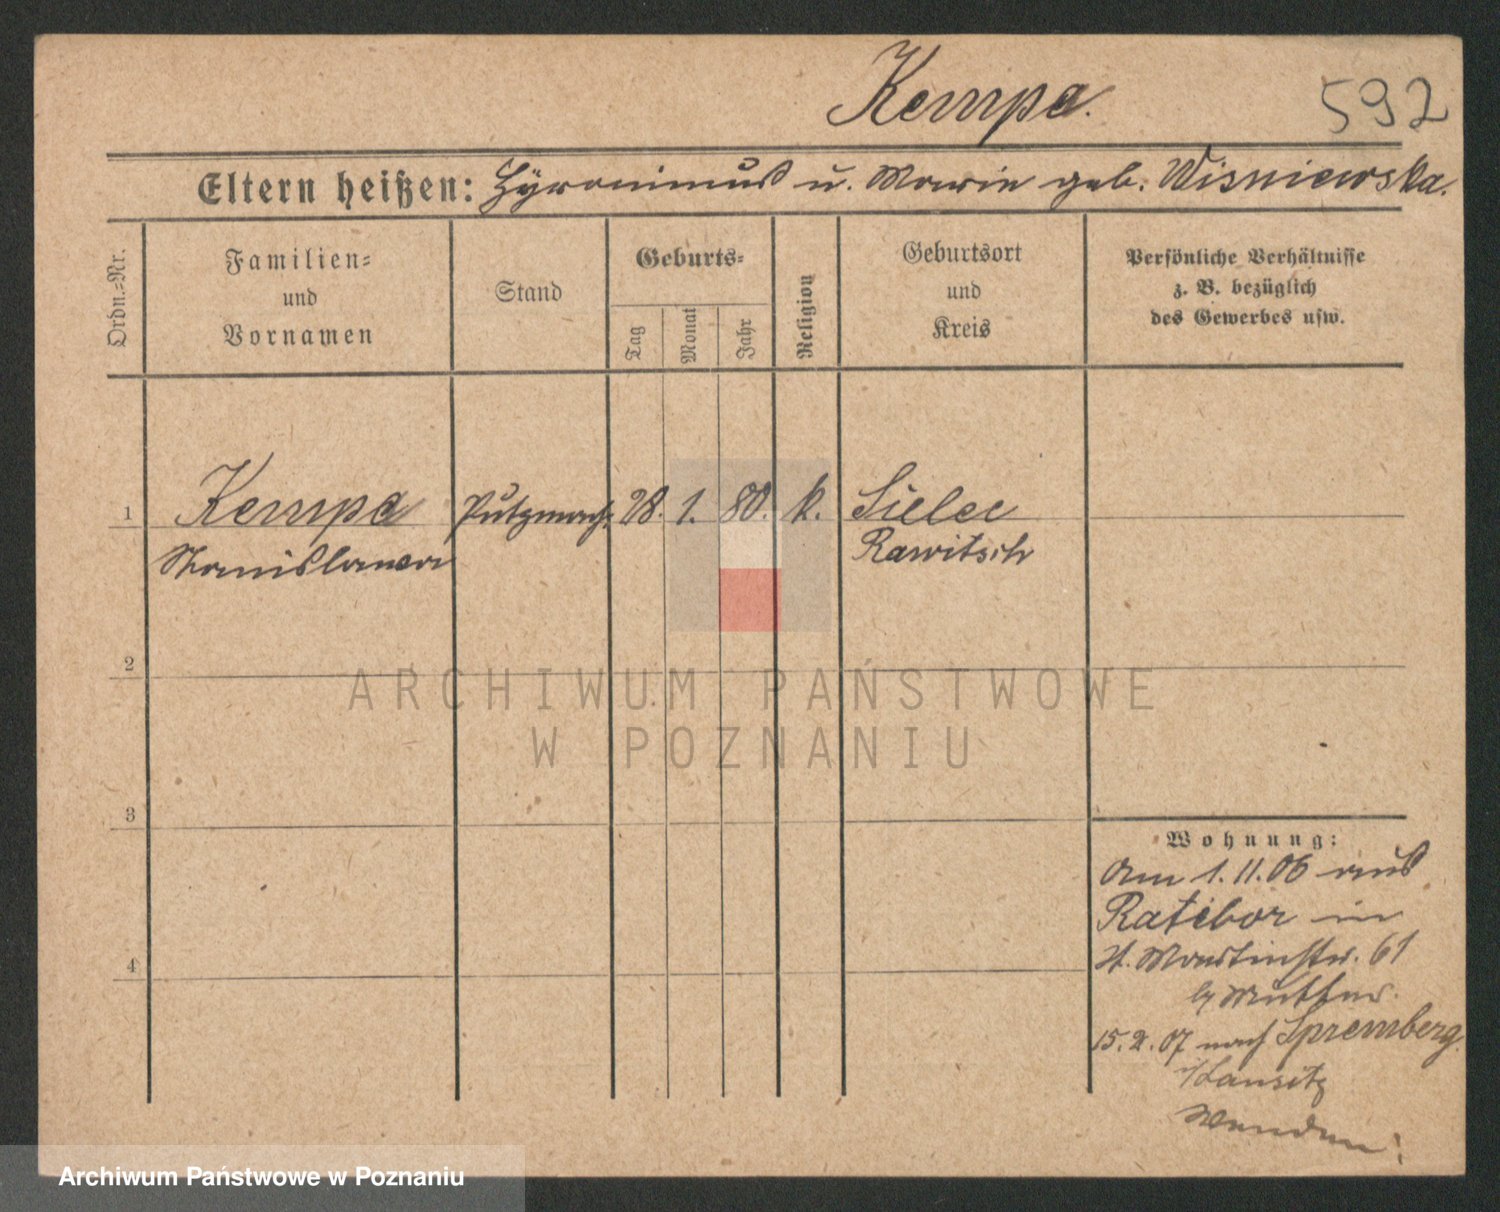 Kempa.
592
Eltern heißen: Hyronimus u. Marie geb. Wisniewska.
Ordn.-Nr.
Familien-
und
Vornamen
Stand
Geburts-
Tag
Monat
Jahr
Religion
Geburtsort
und
Kreis
Persönliche Verhältnisse
z. B. bezüglich
des Gewerbes usw.
1
Kempa Putzmach. 28. 1. 80. k. Sielec
Stanislawa Rawitsch
2
ARCHIWUM PAŃSTWOWE
W POZNANIU
3
Wohnung:
Am 1.11.06 aus
Ratibor in
St. Martinstr. 61
b/ Mutter.
15.2.07 nach Spremberg
i/Lausitz
Archiwum Państwowe w Poznaniu
4